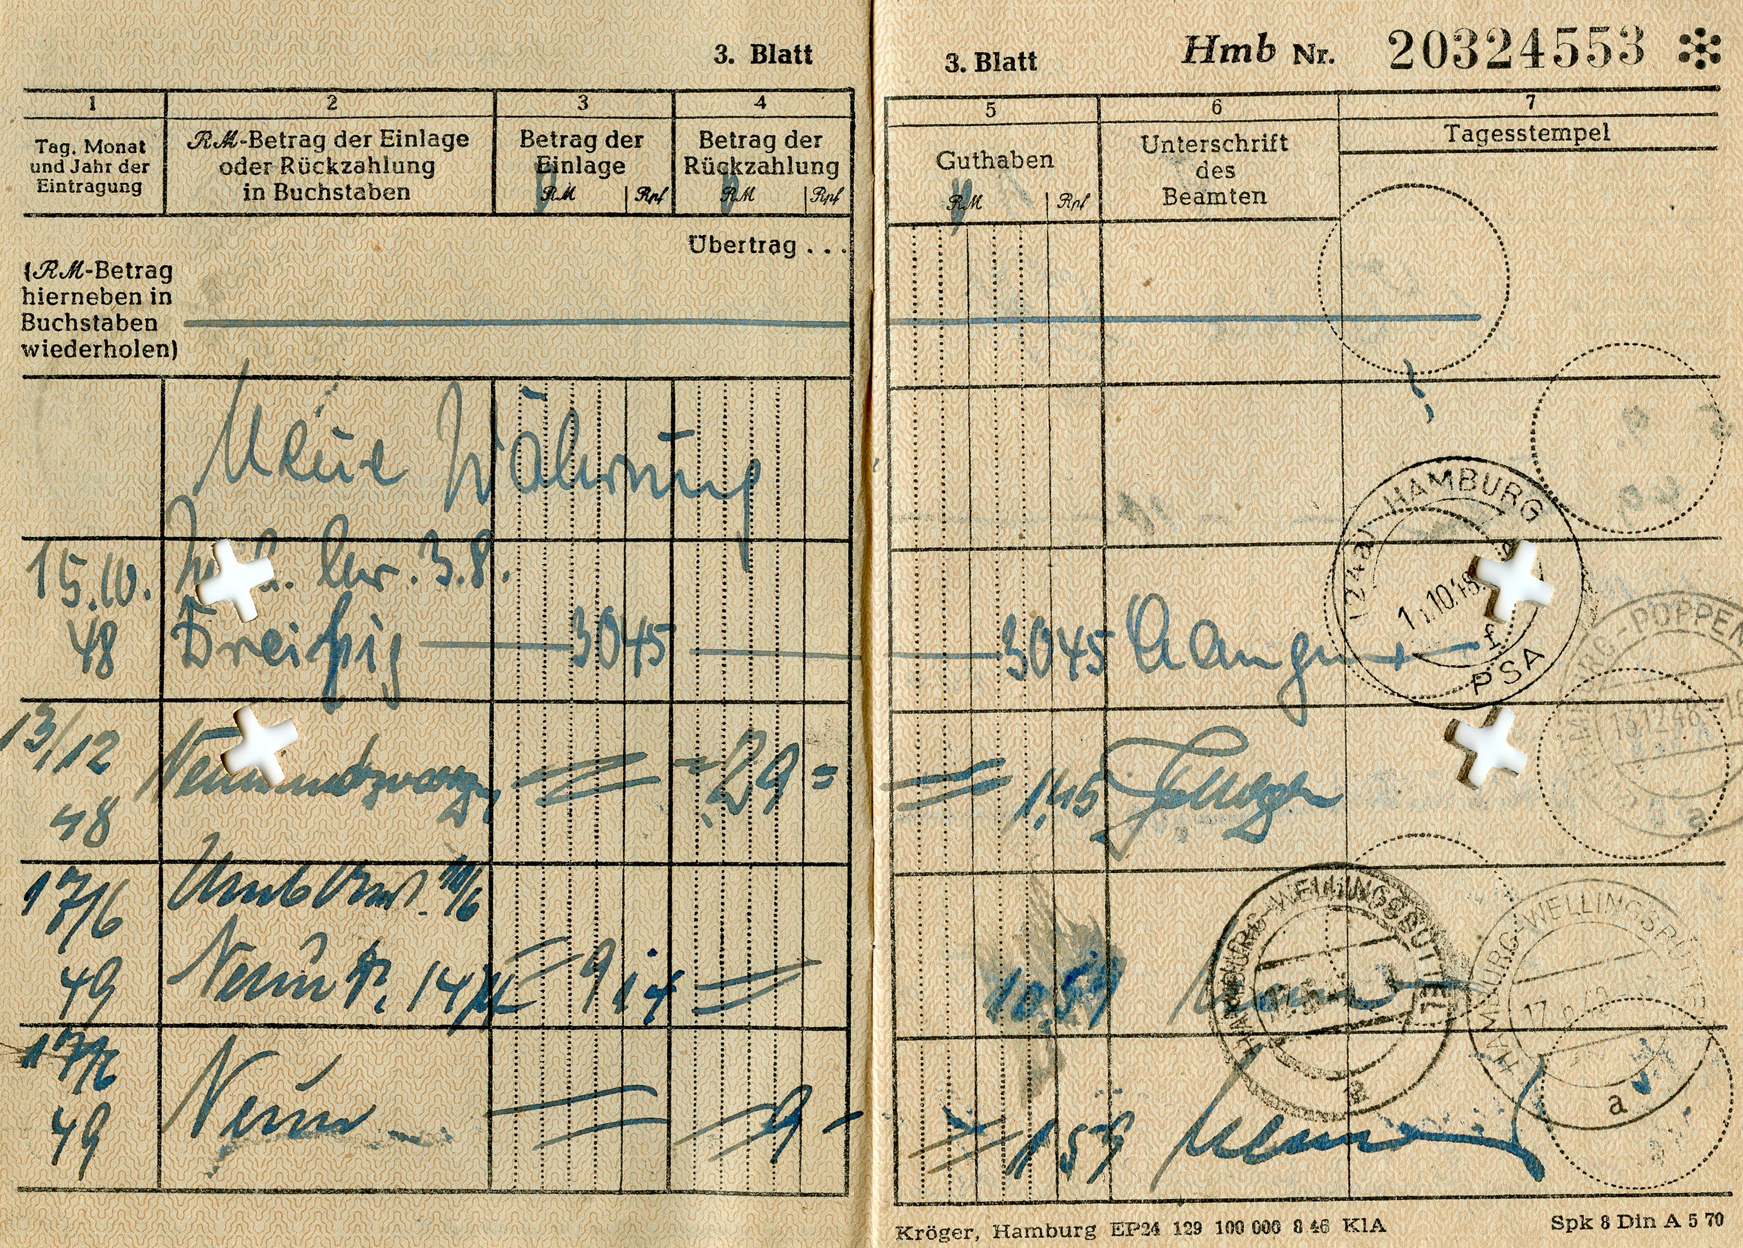 3. Blatt
1 2 3 4
Tag. Monat und Jahr der Eintragung
RM-Betrag der Einlage oder Rückzahlung in Buchstaben
Betrag der Einlage
RM Rpf
Betrag der Rückzahlung
RM Rpf
Übertrag . . .
(RM-Betrag
hierneben in
Buchstaben
wiederholen)
Neue Währung
15.10. 48
3.8.
Dreißig 3045
13/12 48
Neunundzwanzig = 29 =
17/6 49
Neun 14 = 914 =
17/6 49
Neun = 9 -
3. Blatt Hmb Nr. 20324553
5 6 7
Guthaben
RM Rpf
Unterschrift
des
Beamten
Tagesstempel
3045
(24a) HAMBURG
10.48
f
PSA
= 1,45
1612.48
a
1059
HAMBURG-WELLINGSBÜTTEL
a
HAMBURG-WELLINGSBÜTTEL
17.
a
= 159
Kröger, Hamburg EP24 129 100 000 8 46 KlA
Spk 8 Din A 5 70